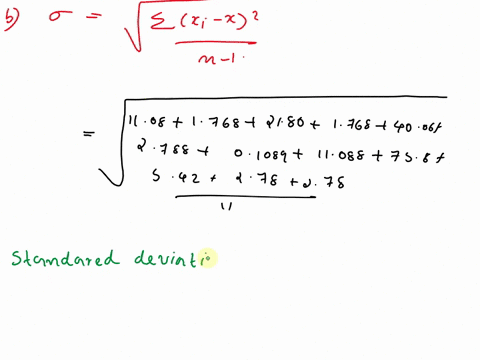 b) σ = √ Σ (xi - x)²
n-1.
= √ 11.08 + 1.768 + 21.80 + 1.768 + 40.06+
2.788 + 0.1089 + 11.088 + 75.8+
5.42 + 2.78 + 2.78
11
Standared deviati